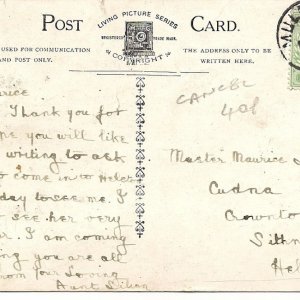 POST CARD.
LIVING PICTURE SERIES
REGISTERED TRADE MARK
COPYRIGHT
USED FOR COMMUNICATION
AND POST ONLY.
THE ADDRESS ONLY TO BE
WRITTEN HERE.
CANCEL
408
Thank you for
you will like
writing to ask
come in to
day to see me. I
see her very
I am coming
you are all
from your Loving
Aunt
Master Maurice
Cudna
Crownto
Sithn
Hel